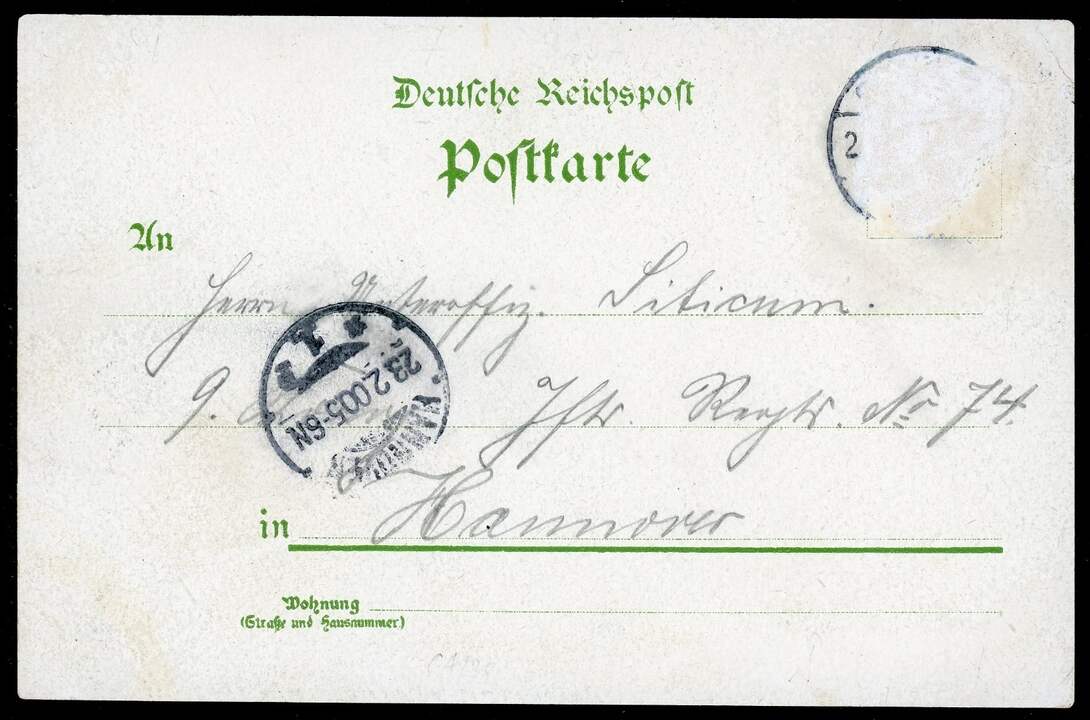 Deutsche Reichspost
Postkarte
2
An
Herrn Unteroffiz.
9. Inftr. Regts. No 74.
HANNOVER
23.2.00.5-6N
1
in Hannover
Wohnung
(Straße und Hausnummer)